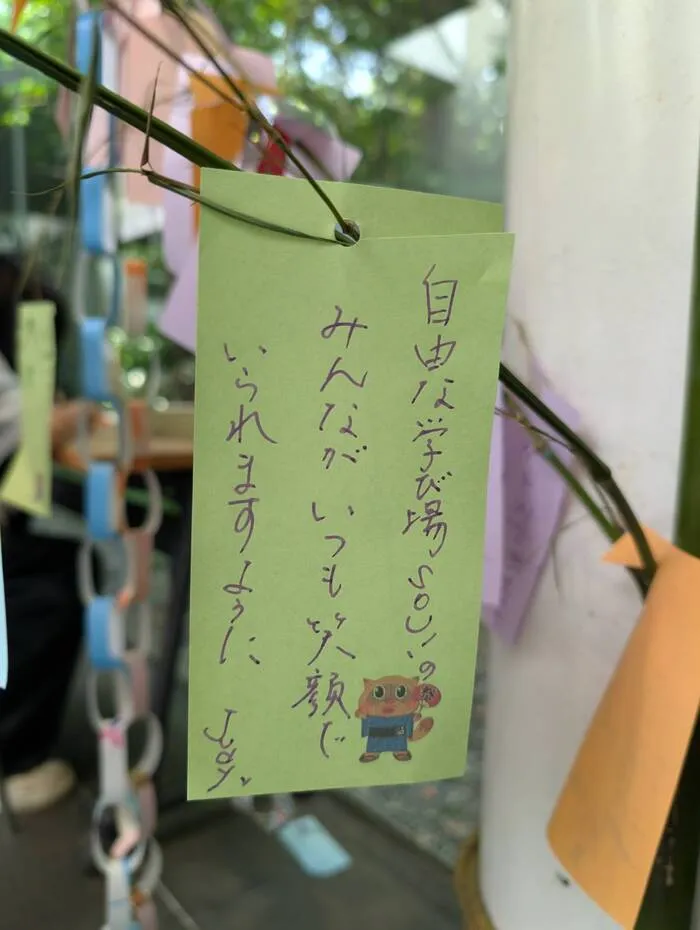 自由な学び場souiの
みんなが いつも 笑顔で
いられますように
Jay.
祭